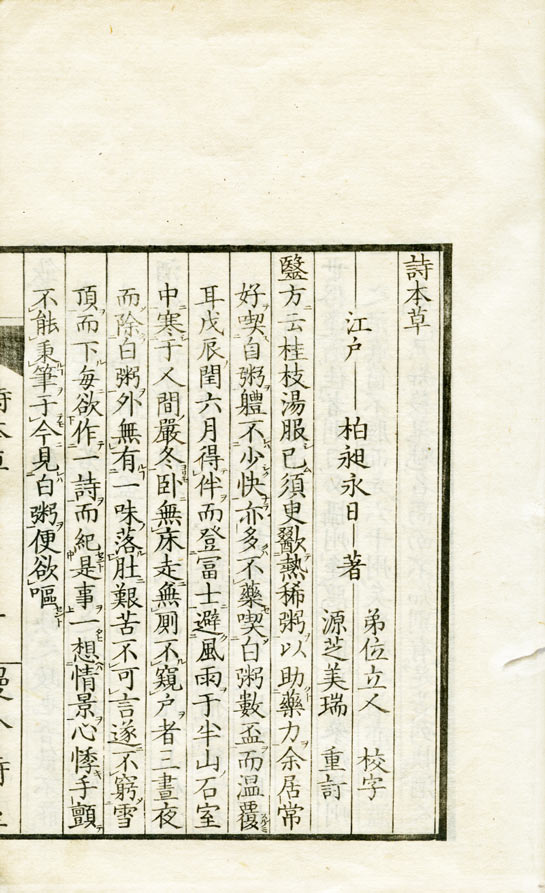 詩本草
江戶 柏昶永日 著 弟位立人 校字
源芝美瑞 重訂
醫方云桂枝湯服已須臾歠熱稀粥以助藥力余居常
好喫白粥軆不少快亦多不藥喫白粥數盃而溫覆
耳戊辰閏六月得伴而登富士避風雨于半山石室
中寒于人間嚴冬卧無床走無厠不窺戶者三晝夜
而除白粥外無有一味落肚艱苦不可言遂不窮雪
頂而下每欲作一詩而紀是事一想情景心悸手顫
不能秉筆于今見白粥便欲嘔
詩本草